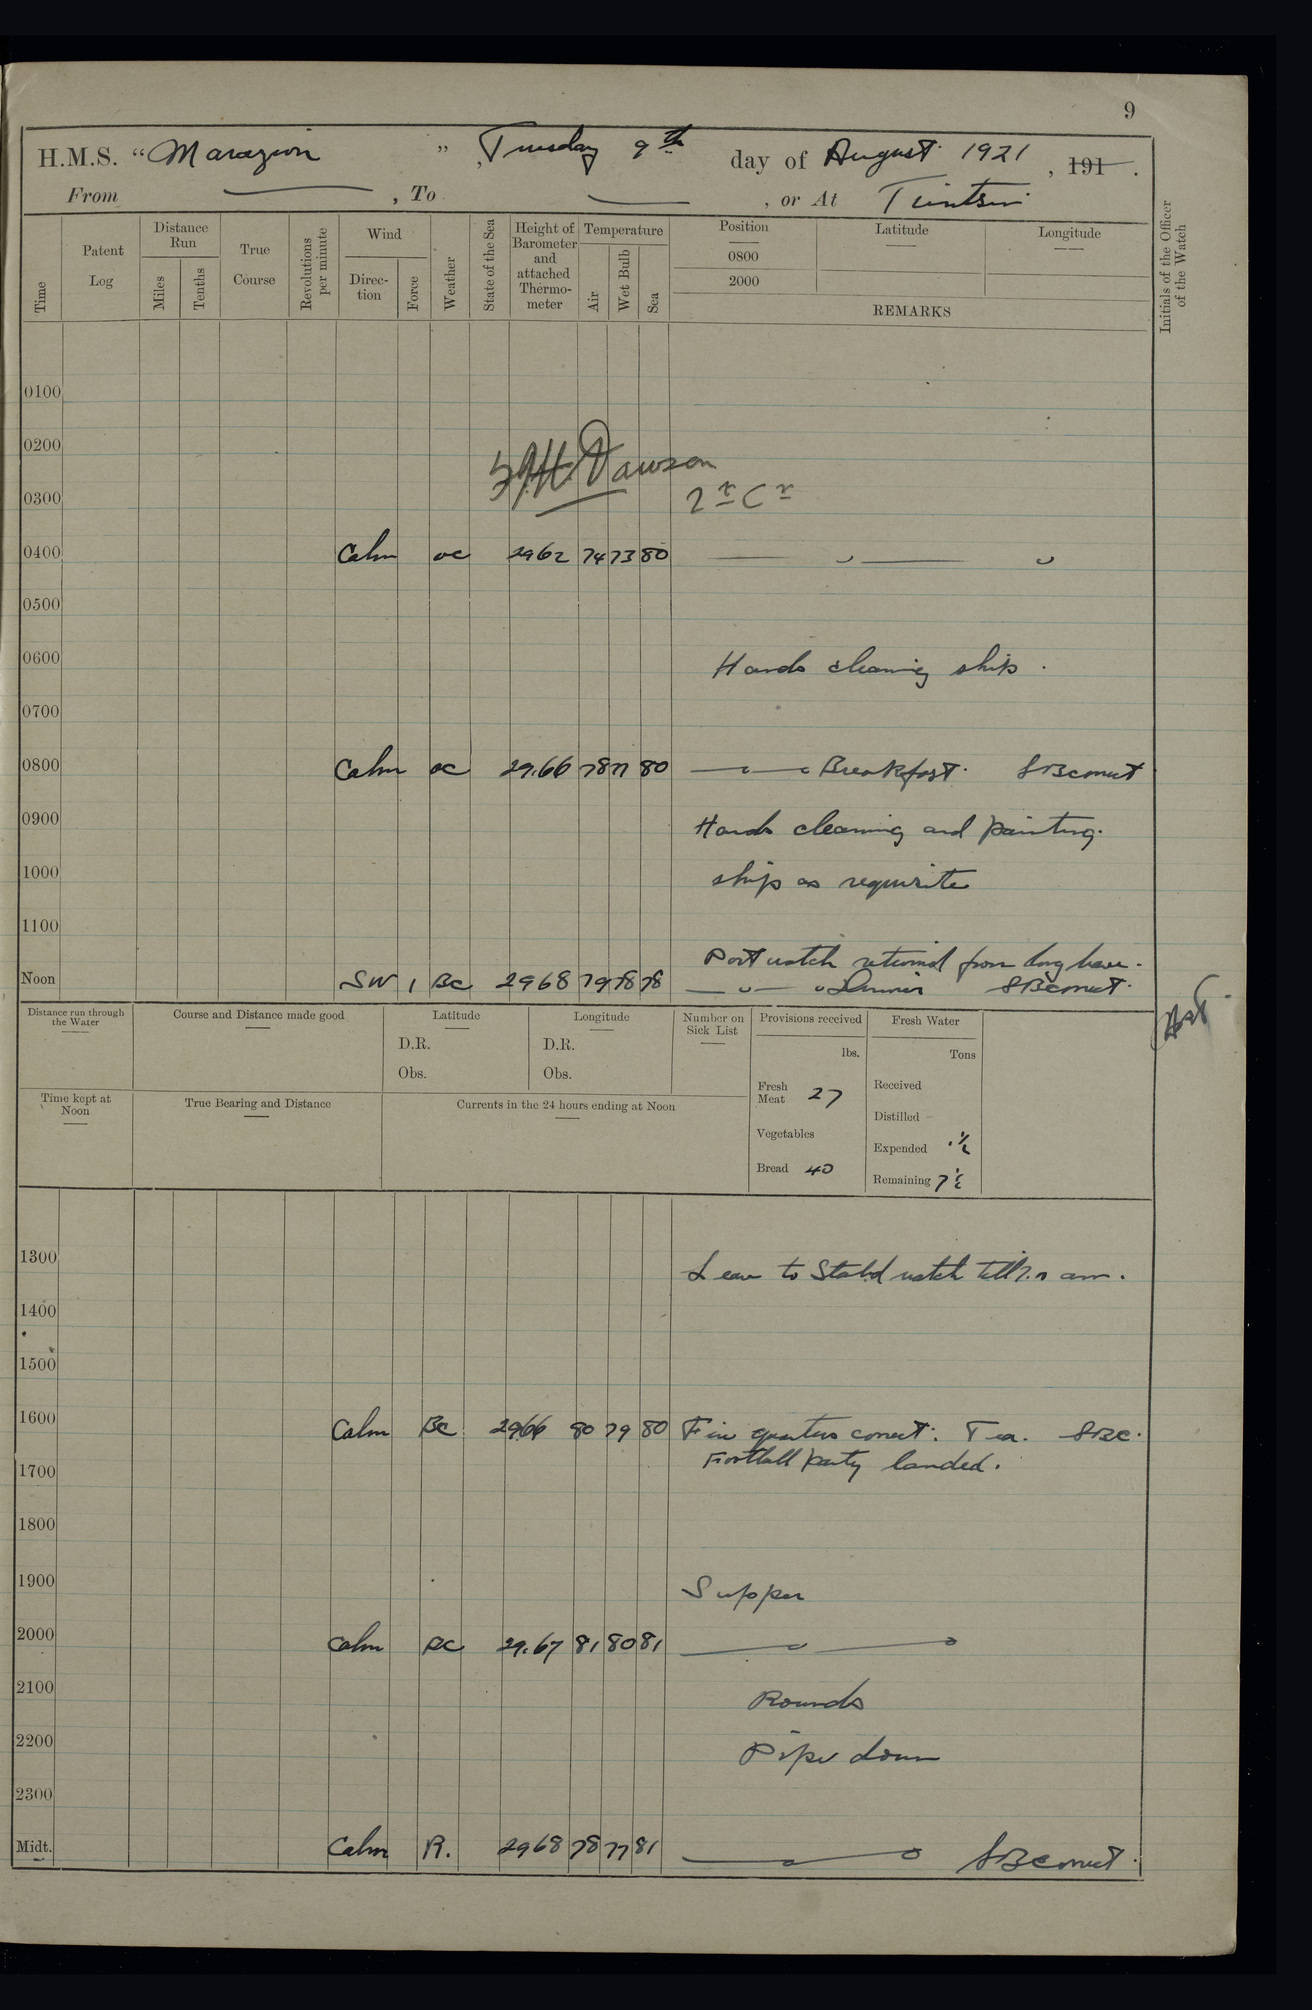 9
H.M.S. “Marazion” , Tuesday 9th day of August 1921, 191 .
From — , To — , or At Tientsin
Time
Patent Log
Distance Run
Miles
Tenths
True Course
Revolutions per minute
Wind
Direc-tion
Force
Weather
State of the Sea
Height of Barometer and attached Thermo-meter
Temperature
Air
Wet Bulb
Sea
Position
0800
2000
Latitude
Longitude
REMARKS
Initials of the Officer of the Watch
0100
0200
Dawson
0300
0400 Calm oc 2962 74 73 80
0500
0600 Hands cleaning ship.
0700
0800 Calm oc 29.66 78 77 80 Breakfast.
0900 Hands cleaning and painting.
1000 ship as requisite
1100
Port watch returned from long leave.
Noon SW 1 BC 2968 79 78 78 Dinner
Distance run through the Water
Course and Distance made good
Latitude
D.R.
Obs.
Longitude
D.R.
Obs.
Number on Sick List
Provisions received
lbs.
Fresh Meat 27
Vegetables
Bread 40
Fresh Water
Tons
Received
Distilled
Expended ½
Remaining 7½
Time kept at Noon
True Bearing and Distance
Currents in the 24 hours ending at Noon
1300 Leave to Starbd watch till 7.0 am.
1400
1500
1600 Calm BC 2966 80 79 80 Fire quarters correct. Tea. SBC.
1700 Football party landed.
1800
1900 Supper
2000 Calm BC 29.67 81 80 81
2100 Rounds
2200 Pipe down
2300
Midt. Calm R. 2968 78 77 81